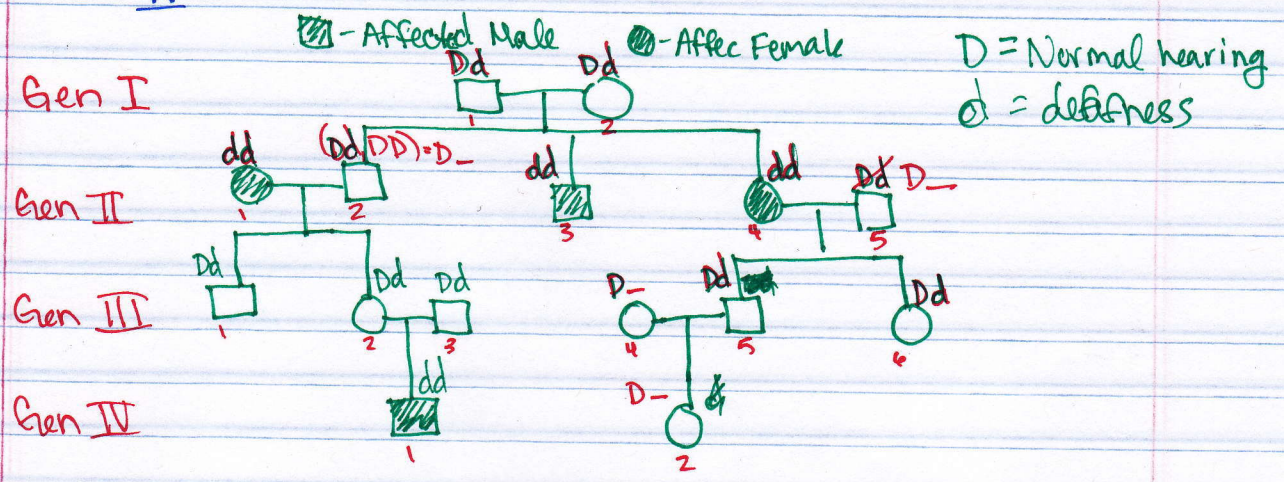 - Affected Male - Affec Female D = Normal hearing
d = deafness
Gen I Dd Dd
1 2
Gen II dd (Dd DD)=D_ dd dd Dd D_
1 2 3 4 5
Gen III Dd Dd Dd D_ Dd Dd
1 2 3 4 5 6
Gen IV dd D_
1 2